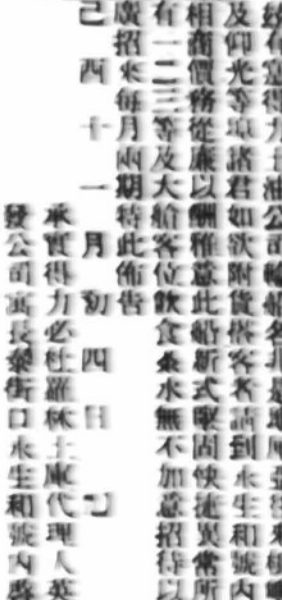 有寔得力士油公司輪船名北
及仰光等埠諸君如欲附貨搭客者請到永生和號內
相商價務從廉以酬雅意此船新式堅固快捷異常所
有一二三等及大艙客位飲食茶水無不加意招待以
廣招來每月兩期特此佈告
己酉十一月初四日
承實得力必杜羅林士庫代理人英
發公司寓長泰街口永生和號內啓